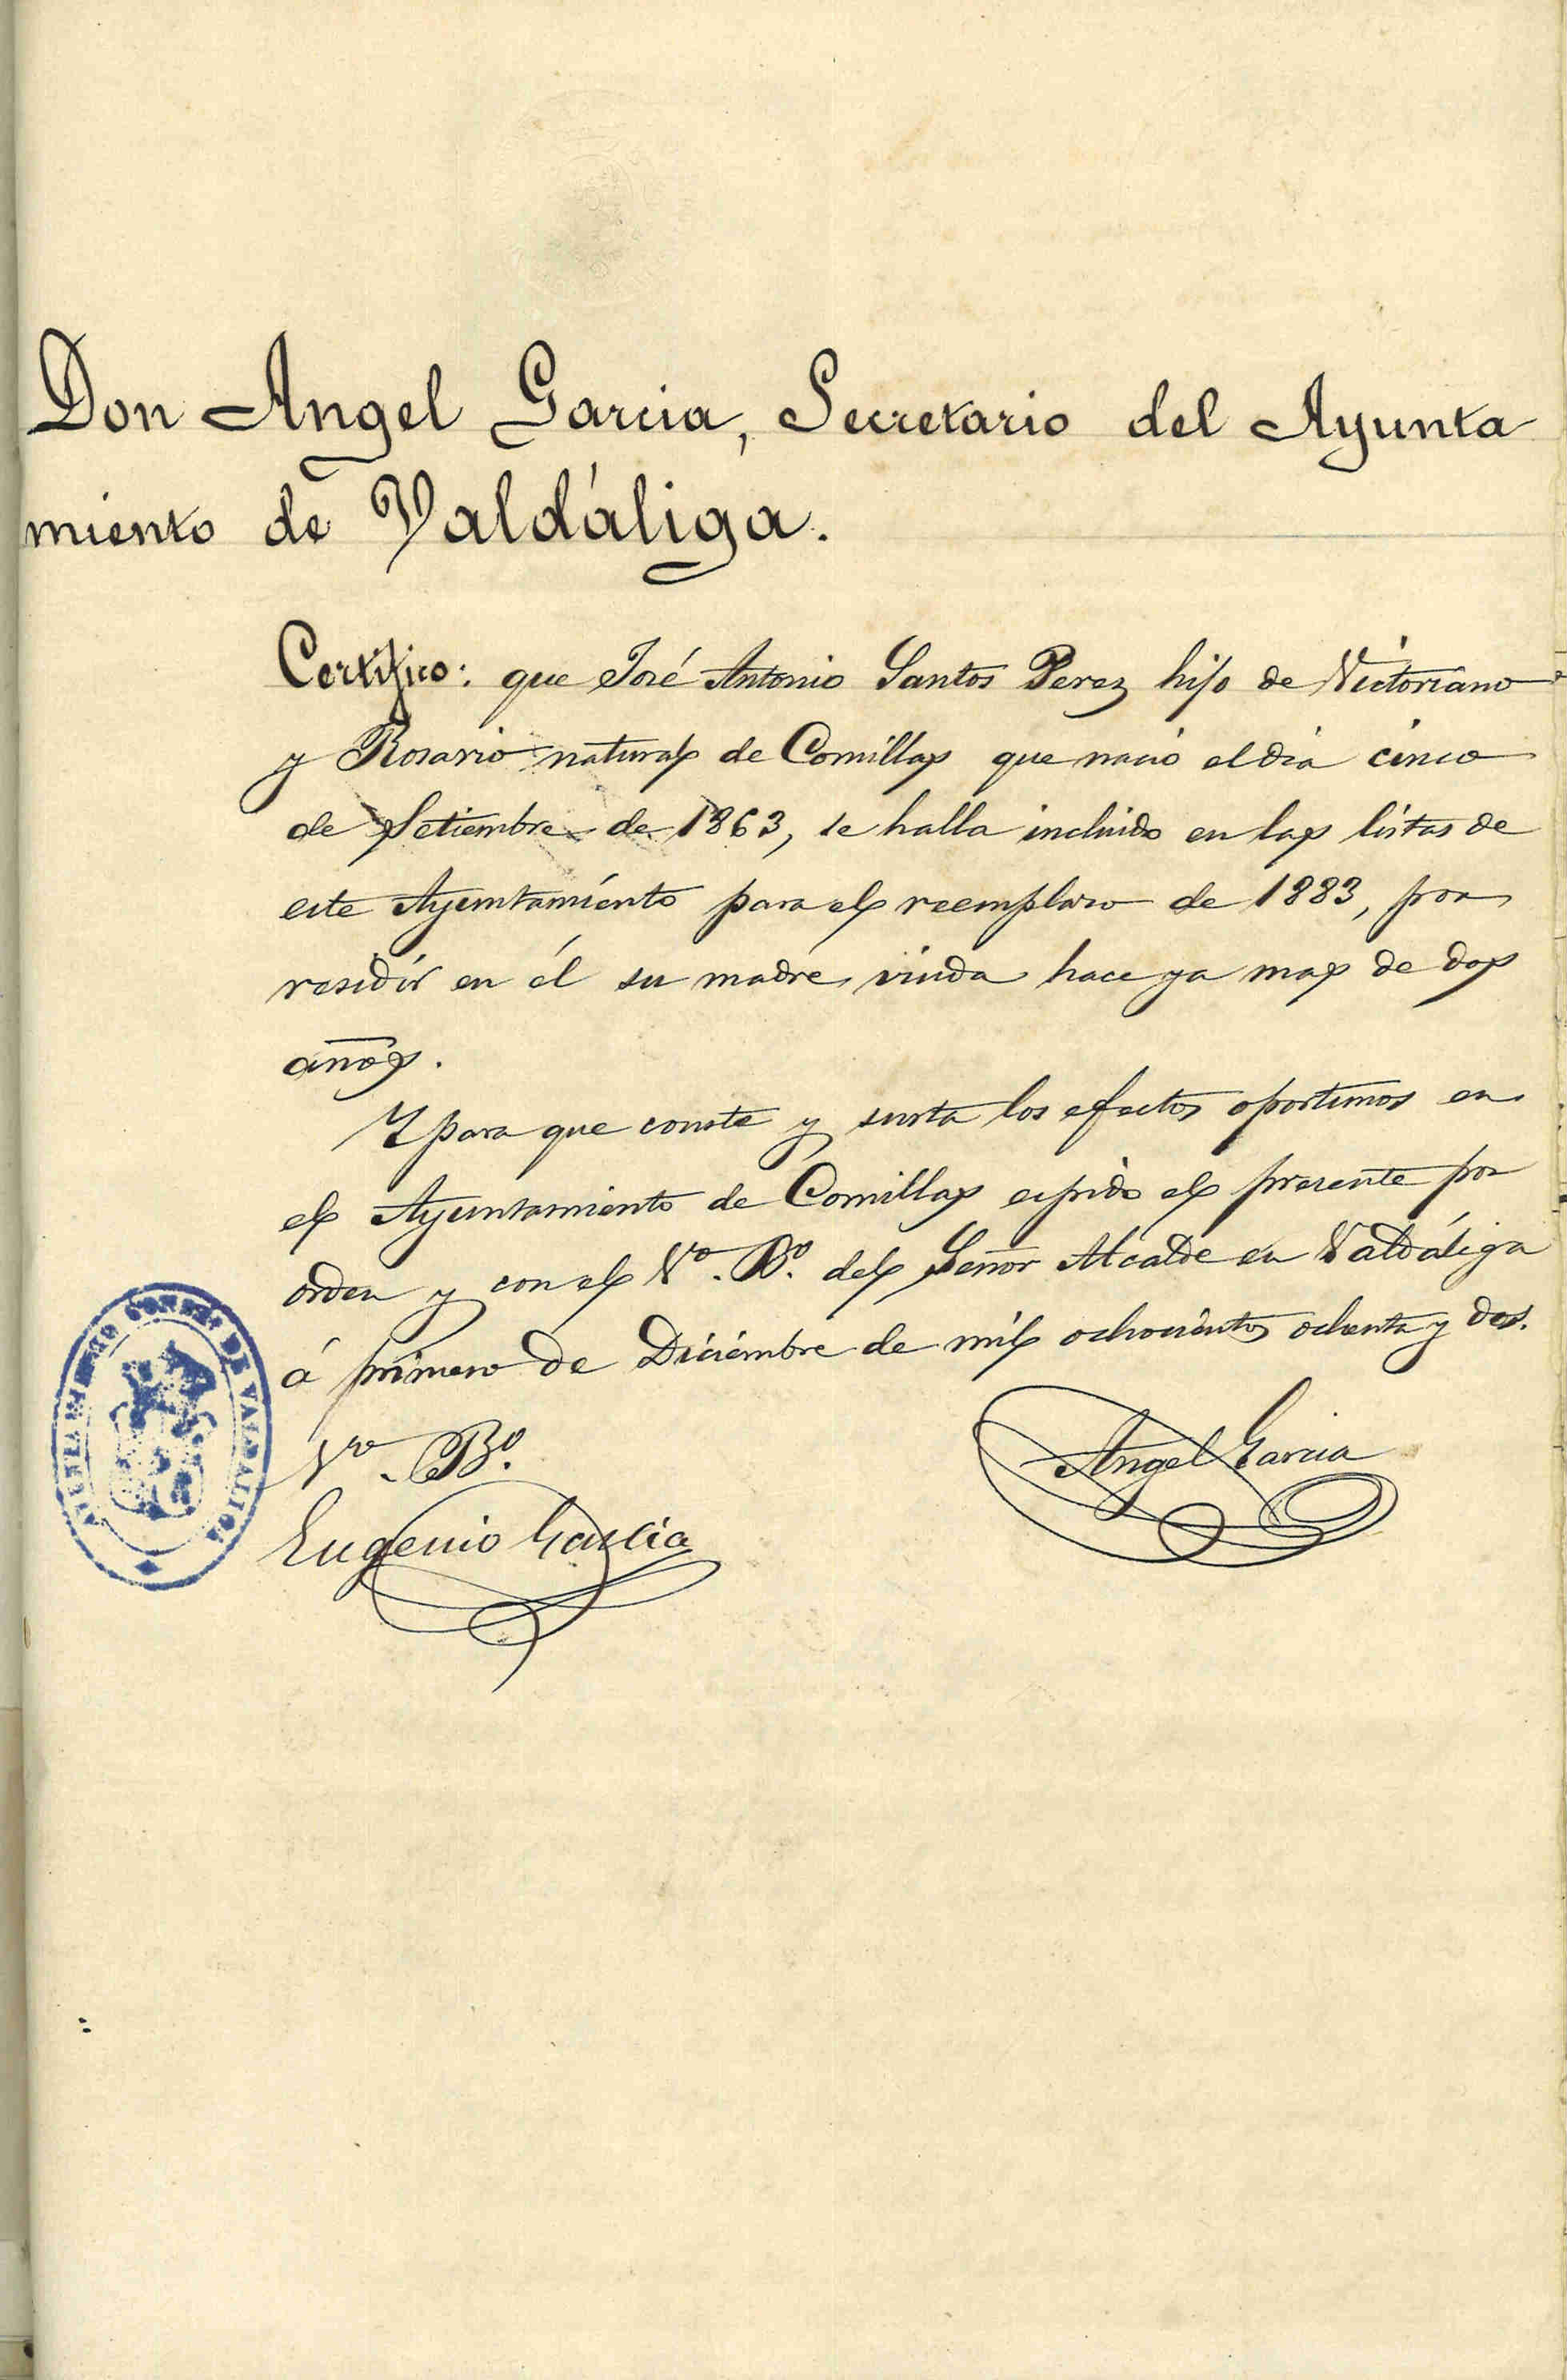 Don Angel Garcia, Secretario del Ayunta
miento de Valdáliga.
Certifico: que José Antonio Santos Perez hijo de Victoriano
y Rosario natural de Comillas que nació el dia cinco
de Setiembre de 1863, se halla incluido en las listas de
este Ayuntamiento para el reemplazo de 1883, por
residir en él su madre viuda hace ya mas de dos
años.
Y para que conste y surta los efectos oportunos en
el Ayuntamiento de Comillas espido el presente por
orden y con el Vº. Bº. del Señor Alcalde en Valdáliga
á primero de Diciembre de mil ochocientos ochenta y dos.
Vº. Bº.
Angel Garcia
Eugenio Garcia
DE VALDALIGA